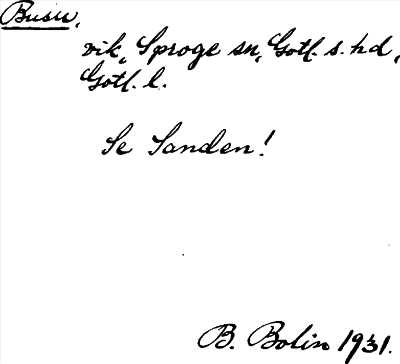 Busu,
vik, Sproge sn, Gotl. s. hd,
Gotl. l.
Se Sanden!
B. Bolin 1931.